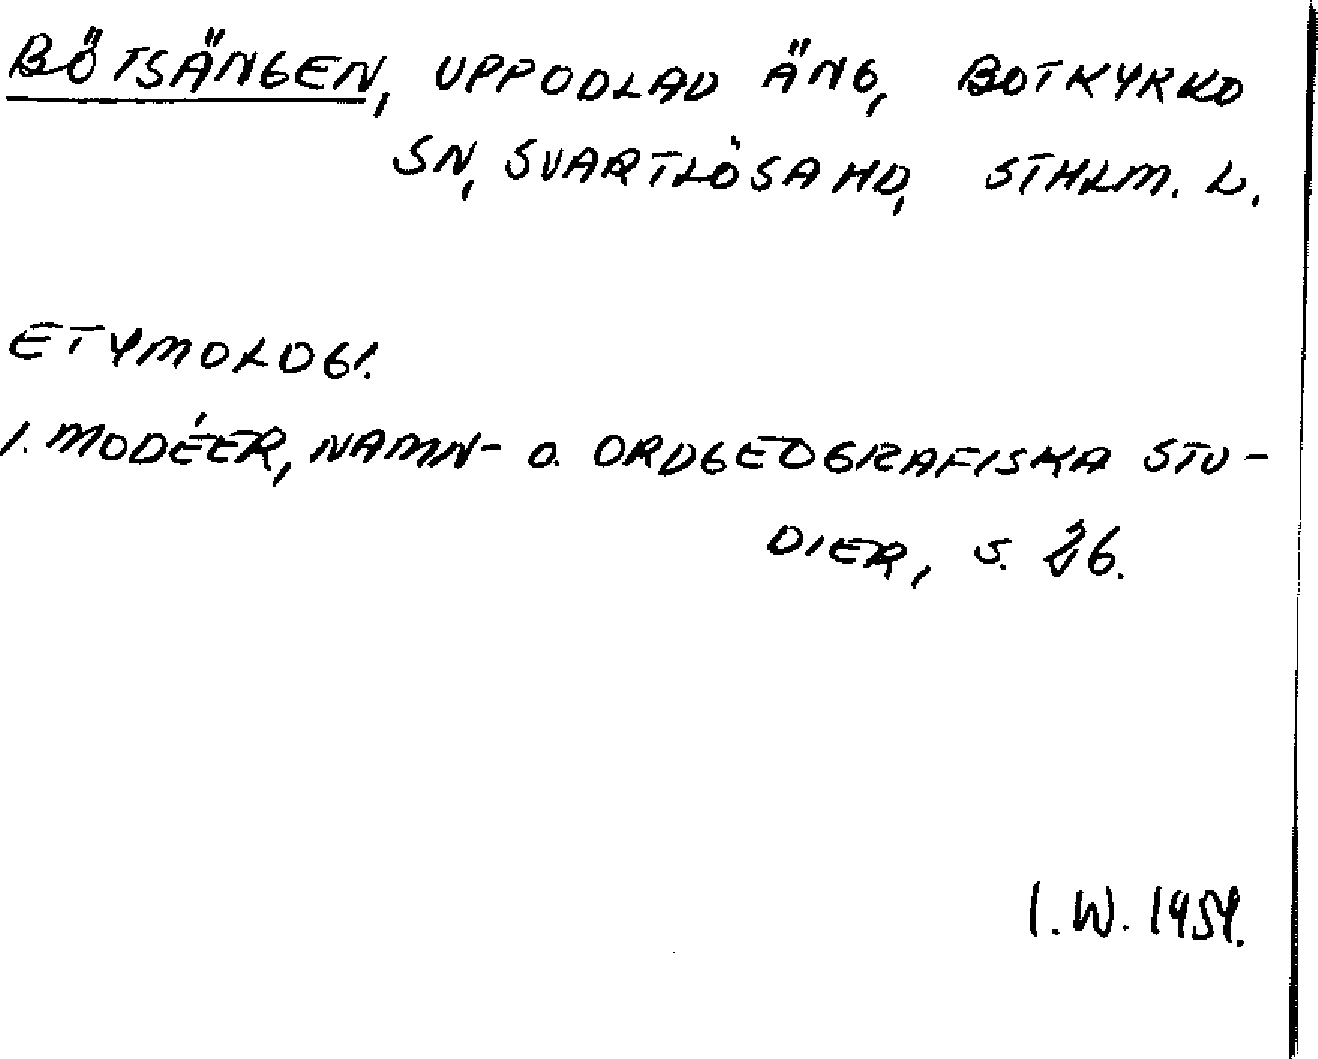 BÖTSÄNGEN, UPPODLAD ÄNG, BOTKYRKO
SN, SVARTLÖSA HD, STHLM. L.
ETYMOLOGI.
I. MODÉER, NAMN- O. ORDGEOGRAFISKA STU-
DIER, S. 26.
I. W. 1959.